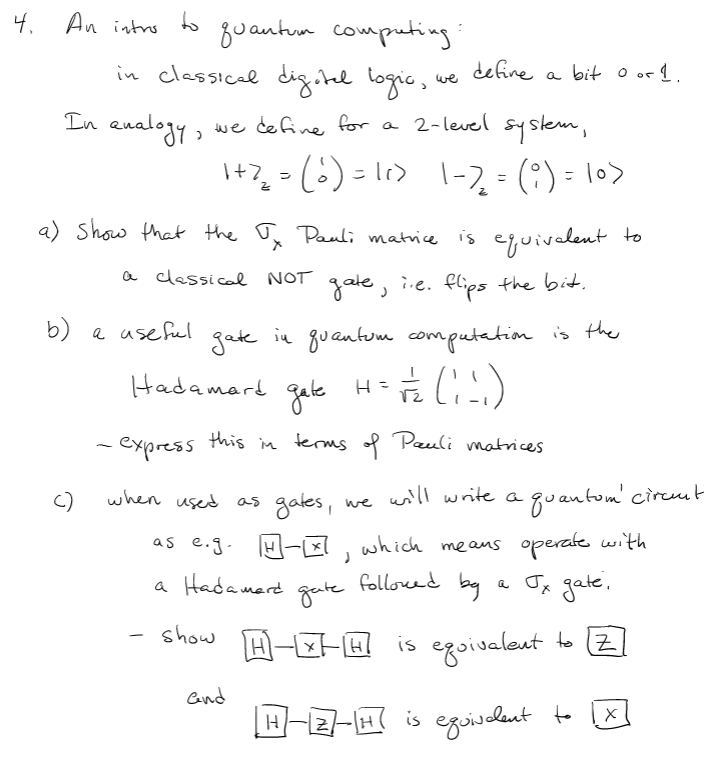 4. An intro to quantum computing:
in classical digital logic, we define a bit 0 or 1.
In analogy, we define for a 2-level system,
|+⟩_z = (1 0) = |1⟩ |-⟩_z = (0 1) = |0⟩
a) Show that the σ_x Pauli matrice is equivalent to
a classical NOT gate, i.e. flips the bit.
b) a useful gate in quantum computation is the
Hadamard gate H = 1/√2 (1 1 1 -1)
- express this in terms of Pauli matrices
c) when used as gates, we will write a quantum' circuit
as e.g. [H]-[X], which means operate with
a Hadamard gate followed by a σ_x gate.
- show [H]-[X]-[H] is equivalent to [Z]
and
[H]-[Z]-[H] is equivalent to [X]